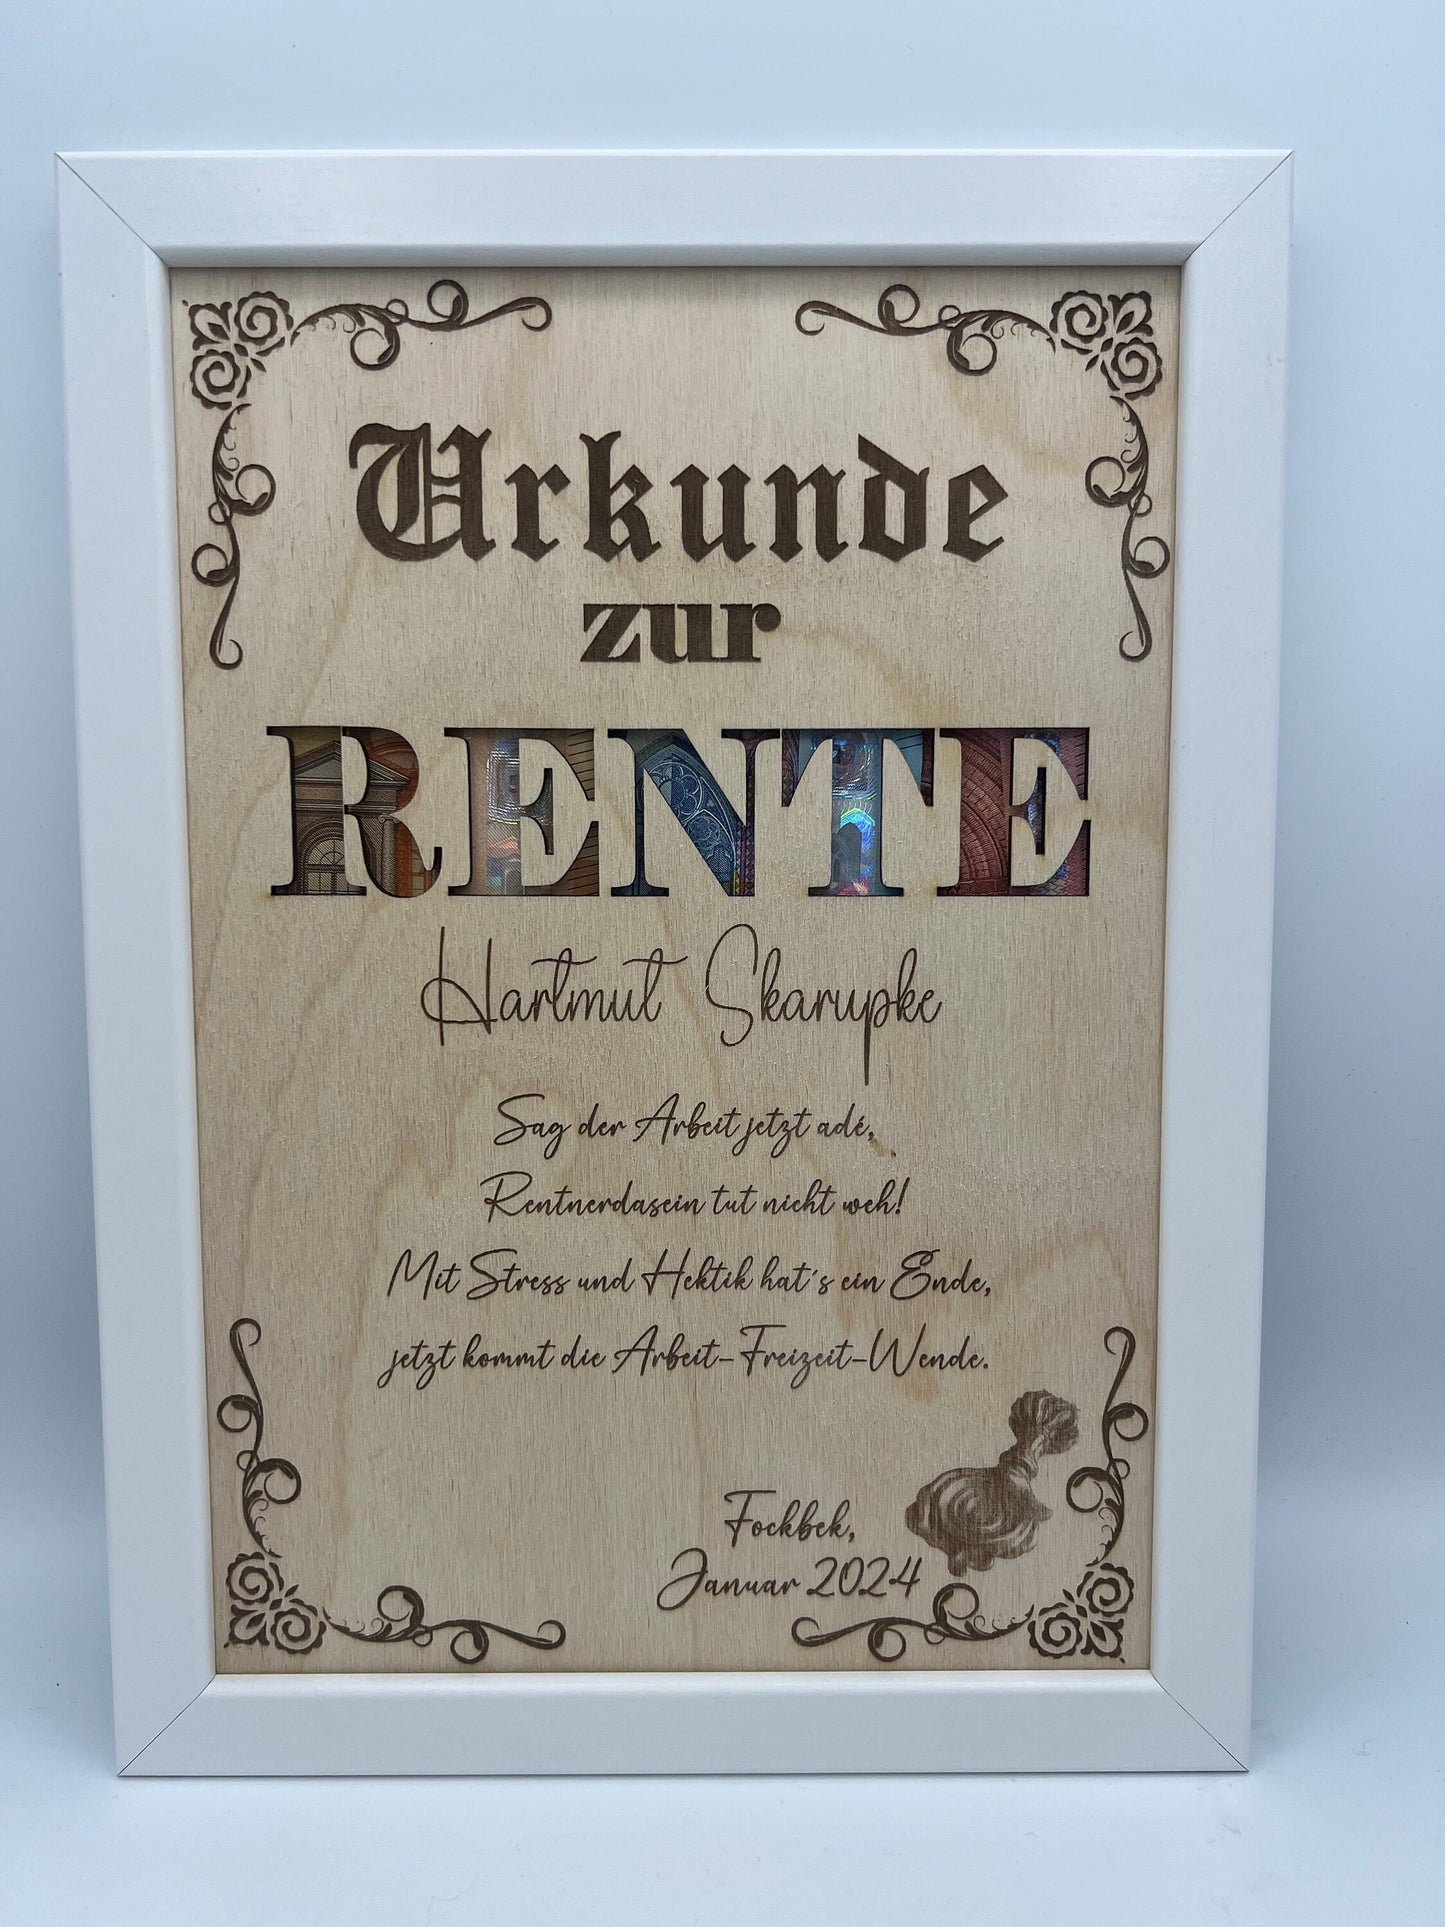 Urkunde
zur
RENTE
Hartmut Skarupke
Sag der Arbeit jetzt adé,
Rentnerdasein tut nicht weh!
Mit Stress und Hektik hat´s ein Ende,
jetzt kommt die Arbeit-Freizeit-Wende.
Fockbek,
Januar 2024